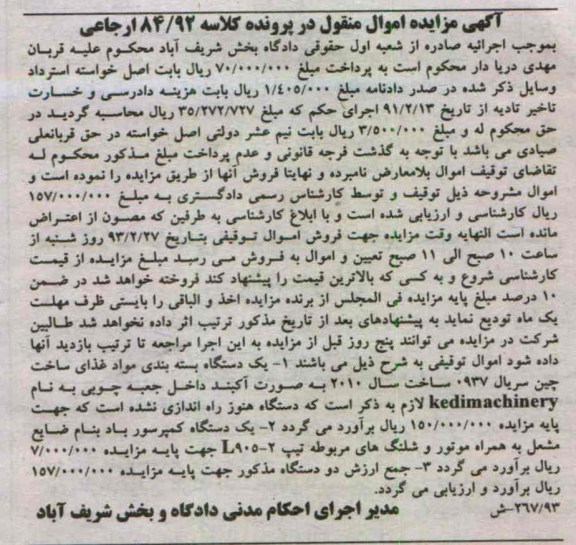 آگهی مزایده اموال منقول در پرونده کلاسه ۸۴/۹۲ ارجاعی
بموجب اجرائیه صادره از شعبه اول حقوقی دادگاه بخش شریف آباد محکوم علیه قربان
مهدی دریا دار محکوم است به پرداخت مبلغ ۷۰/۰۰۰/۰۰۰ ریال بابت اصل خواسته استرداد
وسایل ذکر شده در صدر دادنامه مبلغ ۱/۴۰۵/۰۰۰ ریال بابت هزینه دادرسی و خسارت
تاخیر تادیه از تاریخ ۹۱/۲/۱۳ اجرای حکم که مبلغ ۳۵/۲۷۲/۷۲۷ ریال محاسبه گردید در
حق محکوم له و مبلغ ۳/۵۰۰/۰۰۰ ریال بابت نیم عشر دولتی اصل خواسته در حق قربانعلی
صیادی می باشد با توجه به گذشت فرجه قانونی و عدم پرداخت مبلغ مذکور محکوم له
تقاضای توقیف اموال بلامعارض نامبرده و نهایتا فروش آنها از طریق مزایده را نموده است و
اموال مشروحه ذیل توقیف و توسط کارشناس رسمی دادگستری به مبلغ ۱۵۷/۰۰۰/۰۰۰
ریال کارشناسی و ارزیابی شده است و با ابلاغ کارشناسی به طرفین که مصون از اعتراض
مانده است النهایه وقت مزایده جهت فروش اموال توقیفی بتاریخ ۹۳/۲/۲۷ روز شنبه از
ساعت ۱۰ صبح الی ۱۱ صبح تعیین و اموال به فروش می رسد مبلغ مزایده از قیمت
کارشناسی شروع و به کسی که بالاترین قیمت را پیشنهاد کند فروخته خواهد شد در ضمن
۱۰ درصد مبلغ پایه مزایده فی المجلس از برنده مزایده اخذ و الباقی را بایستی ظرف مهلت
یک ماه تودیع نماید به پیشنهادهای بعد از تاریخ مذکور ترتیب اثر داده نخواهد شد طالبین
شرکت در مزایده می توانند پنج روز قبل از مزایده به این اجرا مراجعه تا ترتیب بازدید آنها
داده شود اموال توقیفی به شرح ذیل می باشند ۱- یک دستگاه بسته بندی مواد غذای ساخت
چین سریال ۰۹۳۷ ساخت سال ۲۰۱۰ به صورت آکبند داخل جعبه چوبی به نام
kedimachinery لازم به ذکر است که دستگاه هنوز راه اندازی نشده است که جهت
پایه مزایده ۱۵۰/۰۰۰/۰۰۰ ریال برآورد می گردد ۲- یک دستگاه کمپرسور باد بنام صنایع
مشعل به همراه موتور و شلنگ های مربوطه تیپ L۹۰۵-۲ جهت پایه مزایده ۷/۰۰۰/۰۰۰
ریال برآورد می گردد ۳- جمع ارزش دو دستگاه مذکور جهت پایه مزایده ۱۵۷/۰۰۰/۰۰۰
ریال برآورد و ارزیابی می گردد.
۲۶۷/۹۳-ش مدیر اجرای احکام مدنی دادگاه و بخش شریف آباد